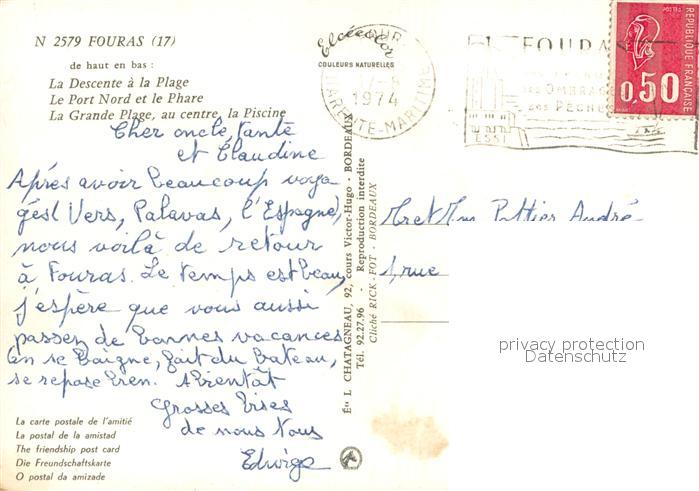 N 2579 FOURAS (17)
de haut en bas :
La Descente à la Plage
Le Port Nord et le Phare
La Grande Plage, au centre, la Piscine
Elcécolor
COULEURS NATURELLES
1974
CHARENTE-MARITIME
FOURAS
SES OMBRAGES
SES PECHE
0,50
REPUBLIQUE FRANÇAISE
Cher oncle, tante
et Claudine
Après avoir beaucoup voya
gés( Vers, Palavas, l'Espagne),
nous voilà de retour
à Fouras. Le temps est beau,
j'espère que vous aussi
passez de bonnes vacances
On se baigne, fait du bateau,
se repose bien. A bientôt
Grosses bises
de nous tous
Edwige
Mr et Mme Pottier André
1, rue
Éts L. CHATAGNEAU, 92, cours Victor-Hugo - BORDEAUX
Tél. 92.27.96 - Reproduction interdite
Cliché RICK-FOT - BORDEAUX
privacy protection
Datenschutz
La carte postale de l'amitié
La postal de la amistad
The friendship post card
Die Freundschaftskarte
O postal da amizade